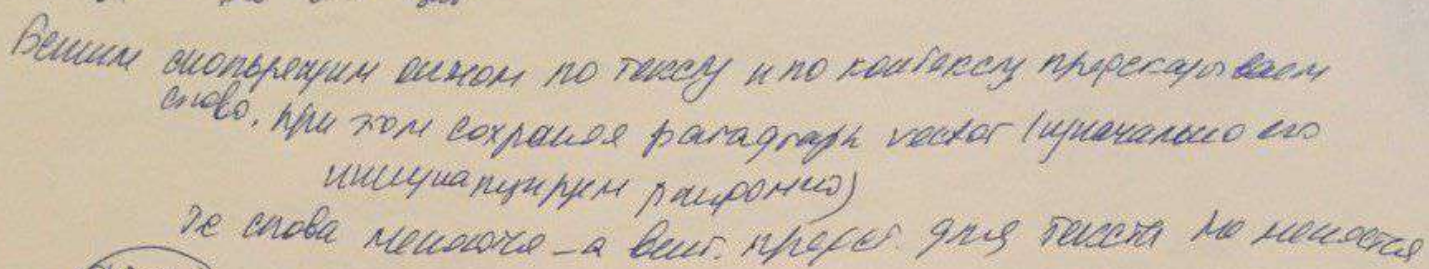 скользящим окном по тексту и по контексту предсказываем
слово, при этом сохраняя paragraph vector (изначально его
инициализируем рандомно)
Те слова меняются - а вект. предст. для текста не меняется